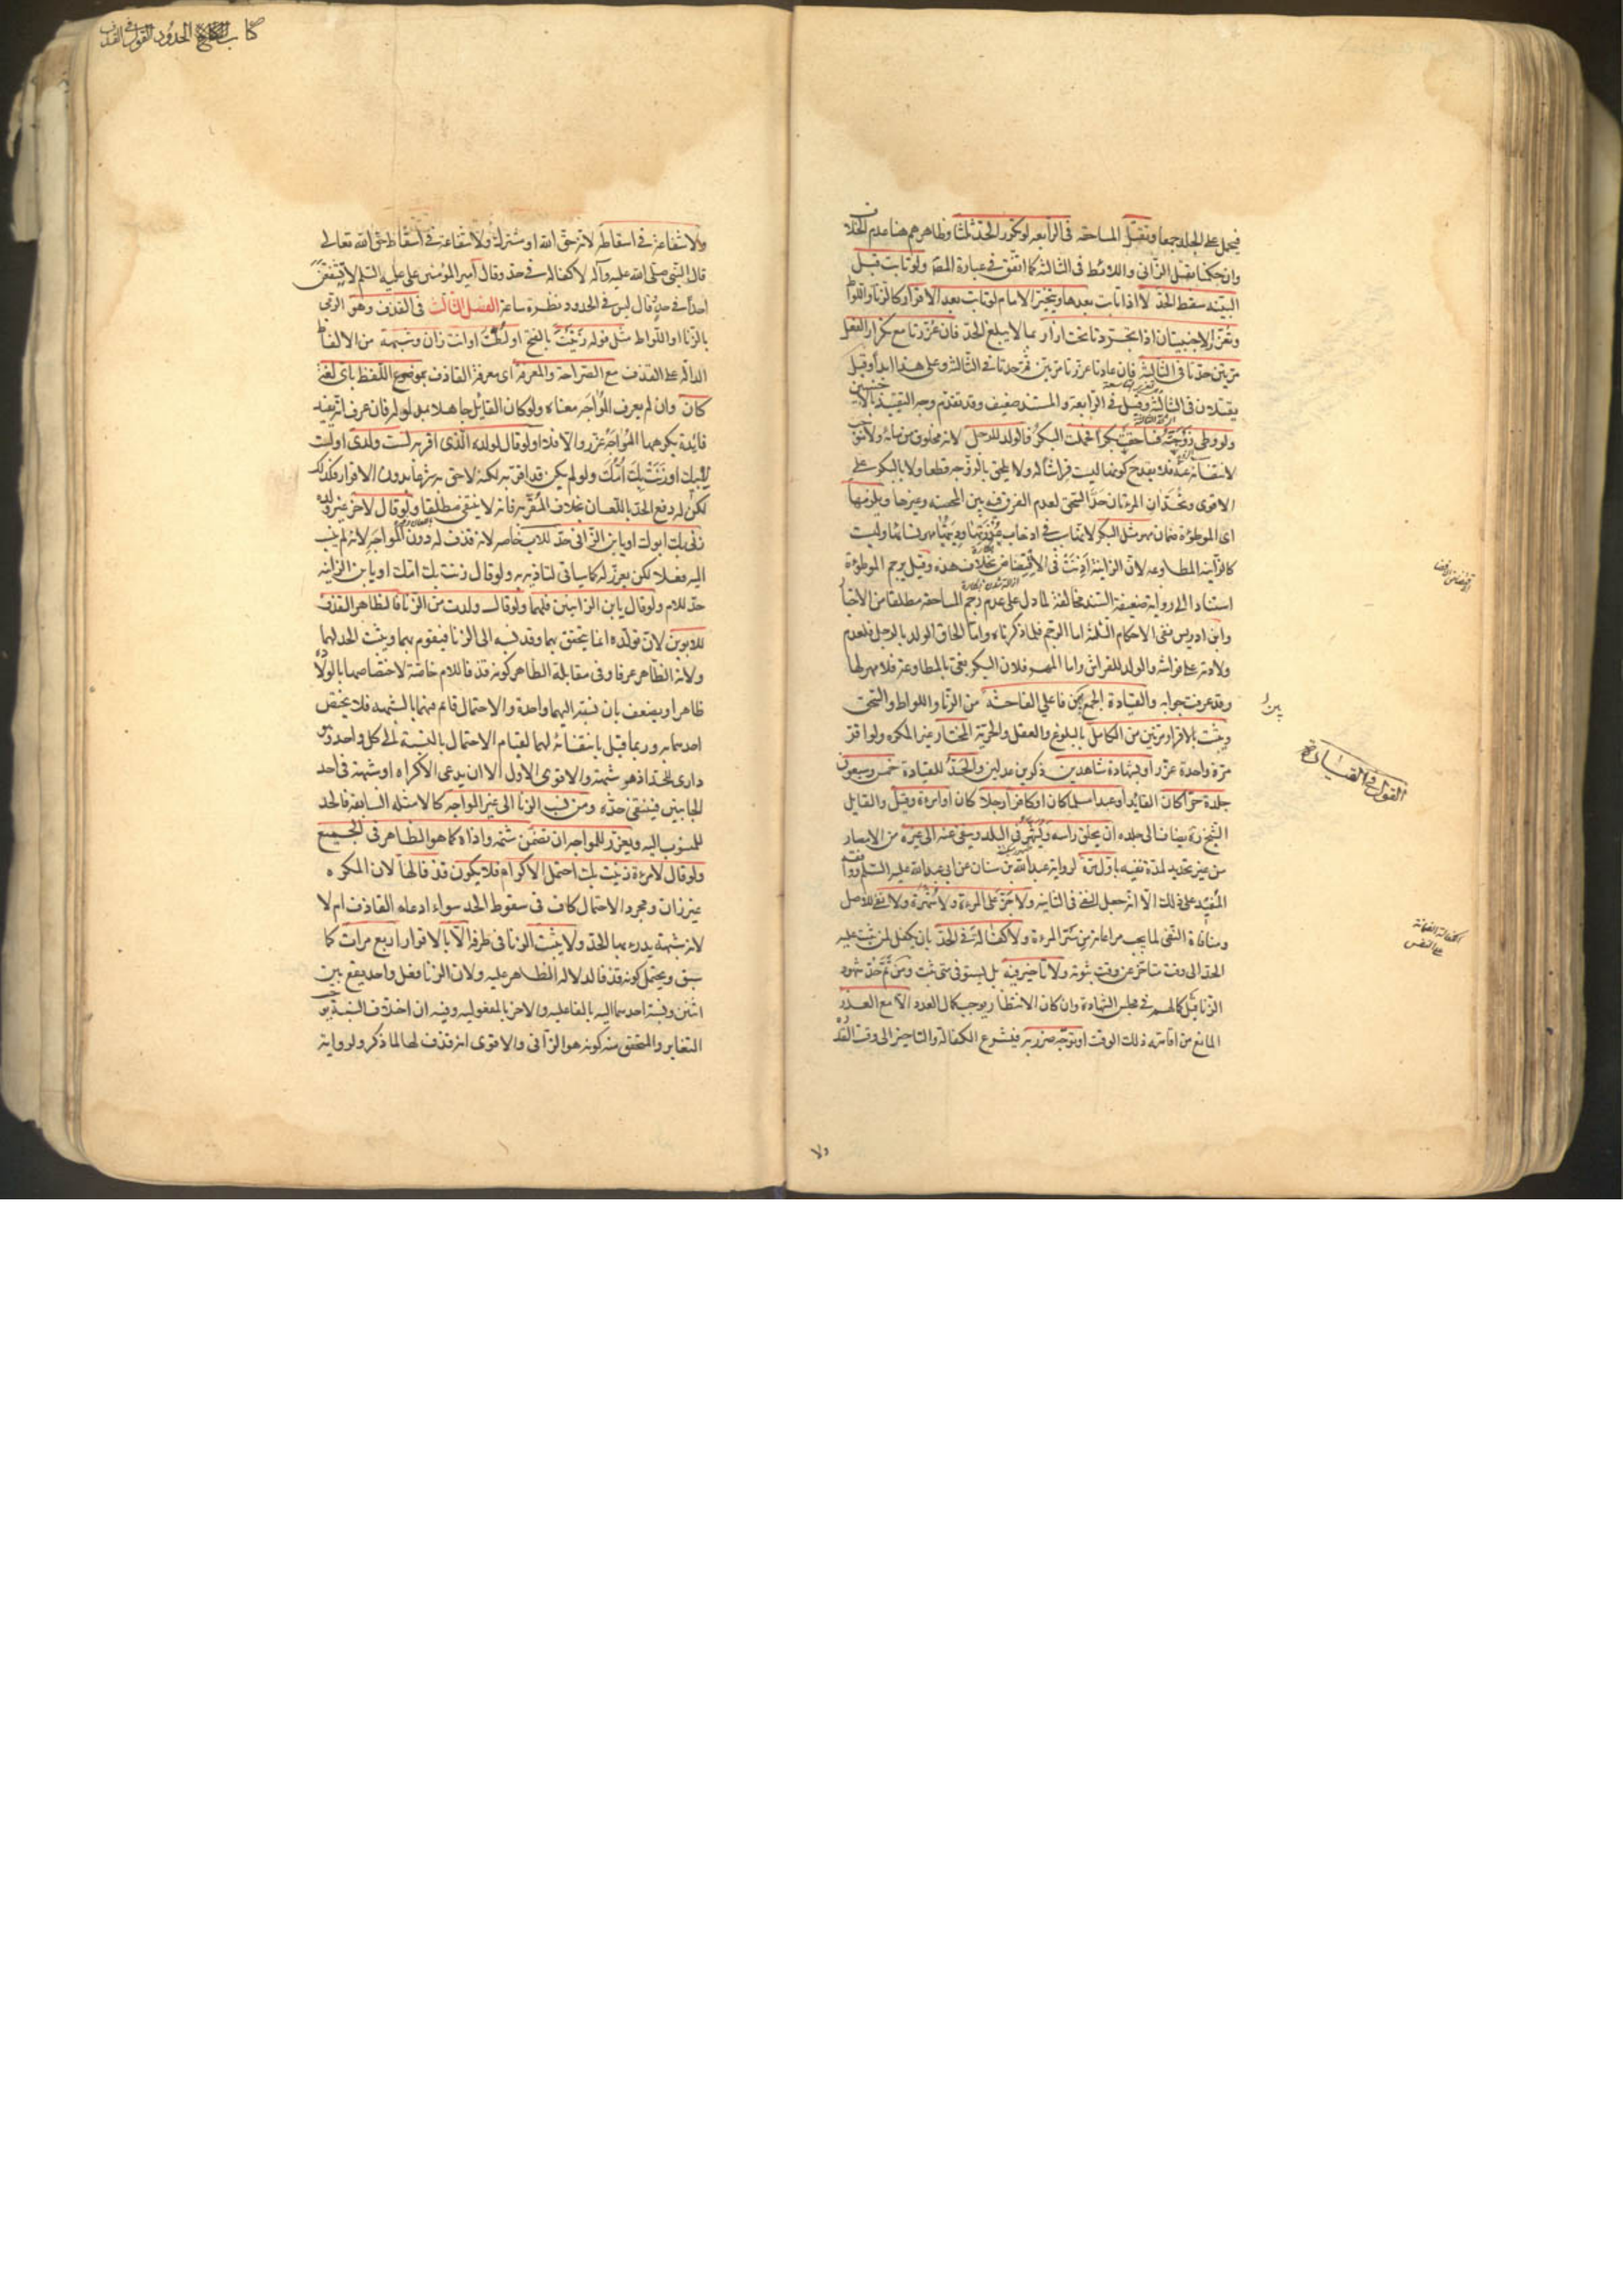 فيحمل على الجلد جمعا وتقتل المساحقه فى الرابعه لو تكرر الحد ثلثا وظاهرهم هنا عدم الخلاف
وان حكمنا بقتل الزانى واللائط فى الثالثه كما اتفق فى عبارة المص ولو تابت قبل
البينه سقط الحد لا اذا تابت بعدها ويتخير الامام لو تابت بعد الاقرار كالزنا واللواط
وتعزر الاجنبيتان اذا تجردتا تحت ازار بما لا يبلغ الحد فان عزرتا مع تكرار الفعل
مرتين حدتا فى الثالثه فان عادتا عزرتا مرتين ثم حدتا فى الثالثه وعلى هذا ابدا وقيل
يقتلان فى الثالثه وقيل فى الرابعه والمستند ضعيف وقد تقدم وجه التقييد بالاجنبيتين
ولو وطى زوجته فساحقت بكرا فحملت البكر فالولد للرجل لانه مخلوق من مائه ولا موجب
لانتفائه عنه فلا يقدح كونها ليست فراشا له ولا يلحق بالزوجه قطعا ولا بالبكر على
الاقوى وتحدان المرءتان حد السحق لعدم الفرق فيه بين المحصنه وغيرها ويلزمها
اى الموطؤة ضمان مهر مثل البكر لانها سبب فى اذهاب عذرتها وديتها مهر نسائها وليست
كالزانيه المطاوعه لان الزانية اذنت فى الافتضاض بخلاف هذه وقيل يرجم الموطوءة
استنادا الى رواية ضعيفة السند مخالفة لما دل على عدم رجم المساحقه مطلقا من الاخبار
وابن ادريس نفى الاحكام الثلثة اما الرجم فلما ذكرناه واما الحاق الولد بالرجل فلعدم
ولادته على فراشه والولد للفراش واما المهر فلان البكر بغى بالمطاوعة فلا مهر لها
وقد عرفت جوابه والقيادة الجمع بين فاعلى الفاحشة من الزنا واللواط والسحق
ويثبت بالاقرار مرتين من الكامل بالبلوغ والعقل والحرية المختار غير المكره ولو اقر
مرة واحدة عزر او بشهادة شاهدين ذكرين عدلين والحد للقيادة خمس وسبعون
جلدة حرا كان القائد او عبدا مسلما كان او كافرا رجلا كان او امرءة وقيل والقايل
الشيخ ره يضاف الى جلده ان يحلق راسه ويشهر فى البلد وينفى عنه الى غيره من الامصار
من غير تحديد لمدة نفيه باول مرة لرواية عبد الله بن سنان عن ابى عبد الله عليه السلم ووافقه
المفيد على ذلك الا انه جعل النفى فى الثانيه ولا جز على المرءة ولا شهرة ولا نفى للاصل
ومنافاة النفى لما يجب مراعاته من ستر المرءة ولا كفالة فى الحد بان يكفل لمن ثبت عليه
الحد الى وقت متاخر عن وقت ثبوته ولا تاخير فيه بل يستوفى متى ثبت ومن ثم حد شهود
الزنا قبل كمالهم فى مجلس الشهادة وان كان الانتظار يوجب كمال العدد الا مع العذر
المانع من اقامته ذلك الوقت او توجه ضرر به فيشرع الكفالة والتاخير الى وقت القدرة
ولا
القول فى القيادة
كتاب الحدود القول فى القذف
ولا شفاعة فى اسقاطه لانه حق الله او مشترك ولا شفاعة فى اسقاط حق الله تعالى
قال النبى صلى الله عليه وآله لا كفالة فى حد وقال امير المؤمنين على عليه السلم لا يشفعن
احدا فى حد وقال ليس فى الحدود نظرة ساعة الفصل الثالث فى القذف وهو الرمى
بالزنا او اللواط مثل قوله زنيت بالفتح او لطت او انت زان وشبهه من الالفاظ
الدالة على القذف مع الصراحة والمعرفة اى معرفة القاذف بموضوع اللفظ باى لغة
كان وان لم يعرف المواجه معناه ولو كان القايل جاهلا بمدلوله فان عرف انه يفيد
فايدة يكرهها المواجه عزر والا فلا او لو قال لولده الذى اقر به لست ولدى او لست
لابيك او زنت بك امك ولو لم يكن قد اقر به لكنه لاحق به شرعا بدون الاقرار فكذلك
لكن له دفع الحد باللعان بخلاف المقر به فانه لا ينتفى مطلقا ولو قال لاخر غير ولده
زنى بك ابوك او يا بن الزانى حد للاب خاصه لانه قذف له دون المواجه لانه لم ينسب
اليه فعلا لكن يعزر له كما سياتى لتاذيه به ولو قال زنت بك امك او يا بن الزانيه
حد للام ولو قال يا بن الزانيين فلهما ولو قال ولدت من الزنا فالظاهر القذف
للابوين لان تولده انما يتحقق بهما وقد نسبه الى الزنا فيقوم بهما ويثبت الحد لهما
ولانه الظاهر عرفا وفى مقابلة الظاهر كونه قذفا للام خاصة لاختصاصها بالولادة
ظاهرا ويضعف بان نسبته اليهما واحدة والاحتمال قائم فيهما بالشبهه فلا يختص
احدهما به وربما قيل بانتفائه لهما لقيام الاحتمال بالنسبة الى كل واحد وهو
دارئ للحد اذ هو شبهة والاقوى الاول الا ان يدعى الاكراه او شبهة فى احد
الجانبين فينتفى حده ومن نسب الزنا الى غير المواجه كالامثله السابقة فالحد
للمنسوب اليه ويعزر للمواجه ان تضمن شتمه واذاه كما هو الظاهر فى الجميع
ولو قال لامرءة زنيت بك احتمل الاكراه فلا يكون قذفا لها لان المكره
غير زان ومجرد الاحتمال كاف فى سقوط الحد سواء ادعاه القاذف ام لا
لانه شبهة يدرء بها الحد ولا يثبت الزنا فى طرفه الا بالاقرار اربع مرات كما
سبق ويحتمل كونه قذفا لدلالة الظاهر عليه ولان الزنا فعل واحد يقع بين
اثنين ونسبة احدهما اليه بالفاعليه والاخر بالمفعوليه وفيه ان اختلاف النسبة يوجب
التغاير والمتحقق منه كونه هو الزانى والاقوى انه قذف لها لما ذكر ولرواية